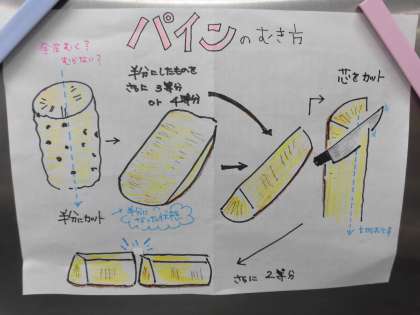 パインのむき方
全皮むく?
むらない?
半分にしたものを
さらに3等分
or 4等分
芯をカット
半分にカット
半分に
なった状態
さらに2等分